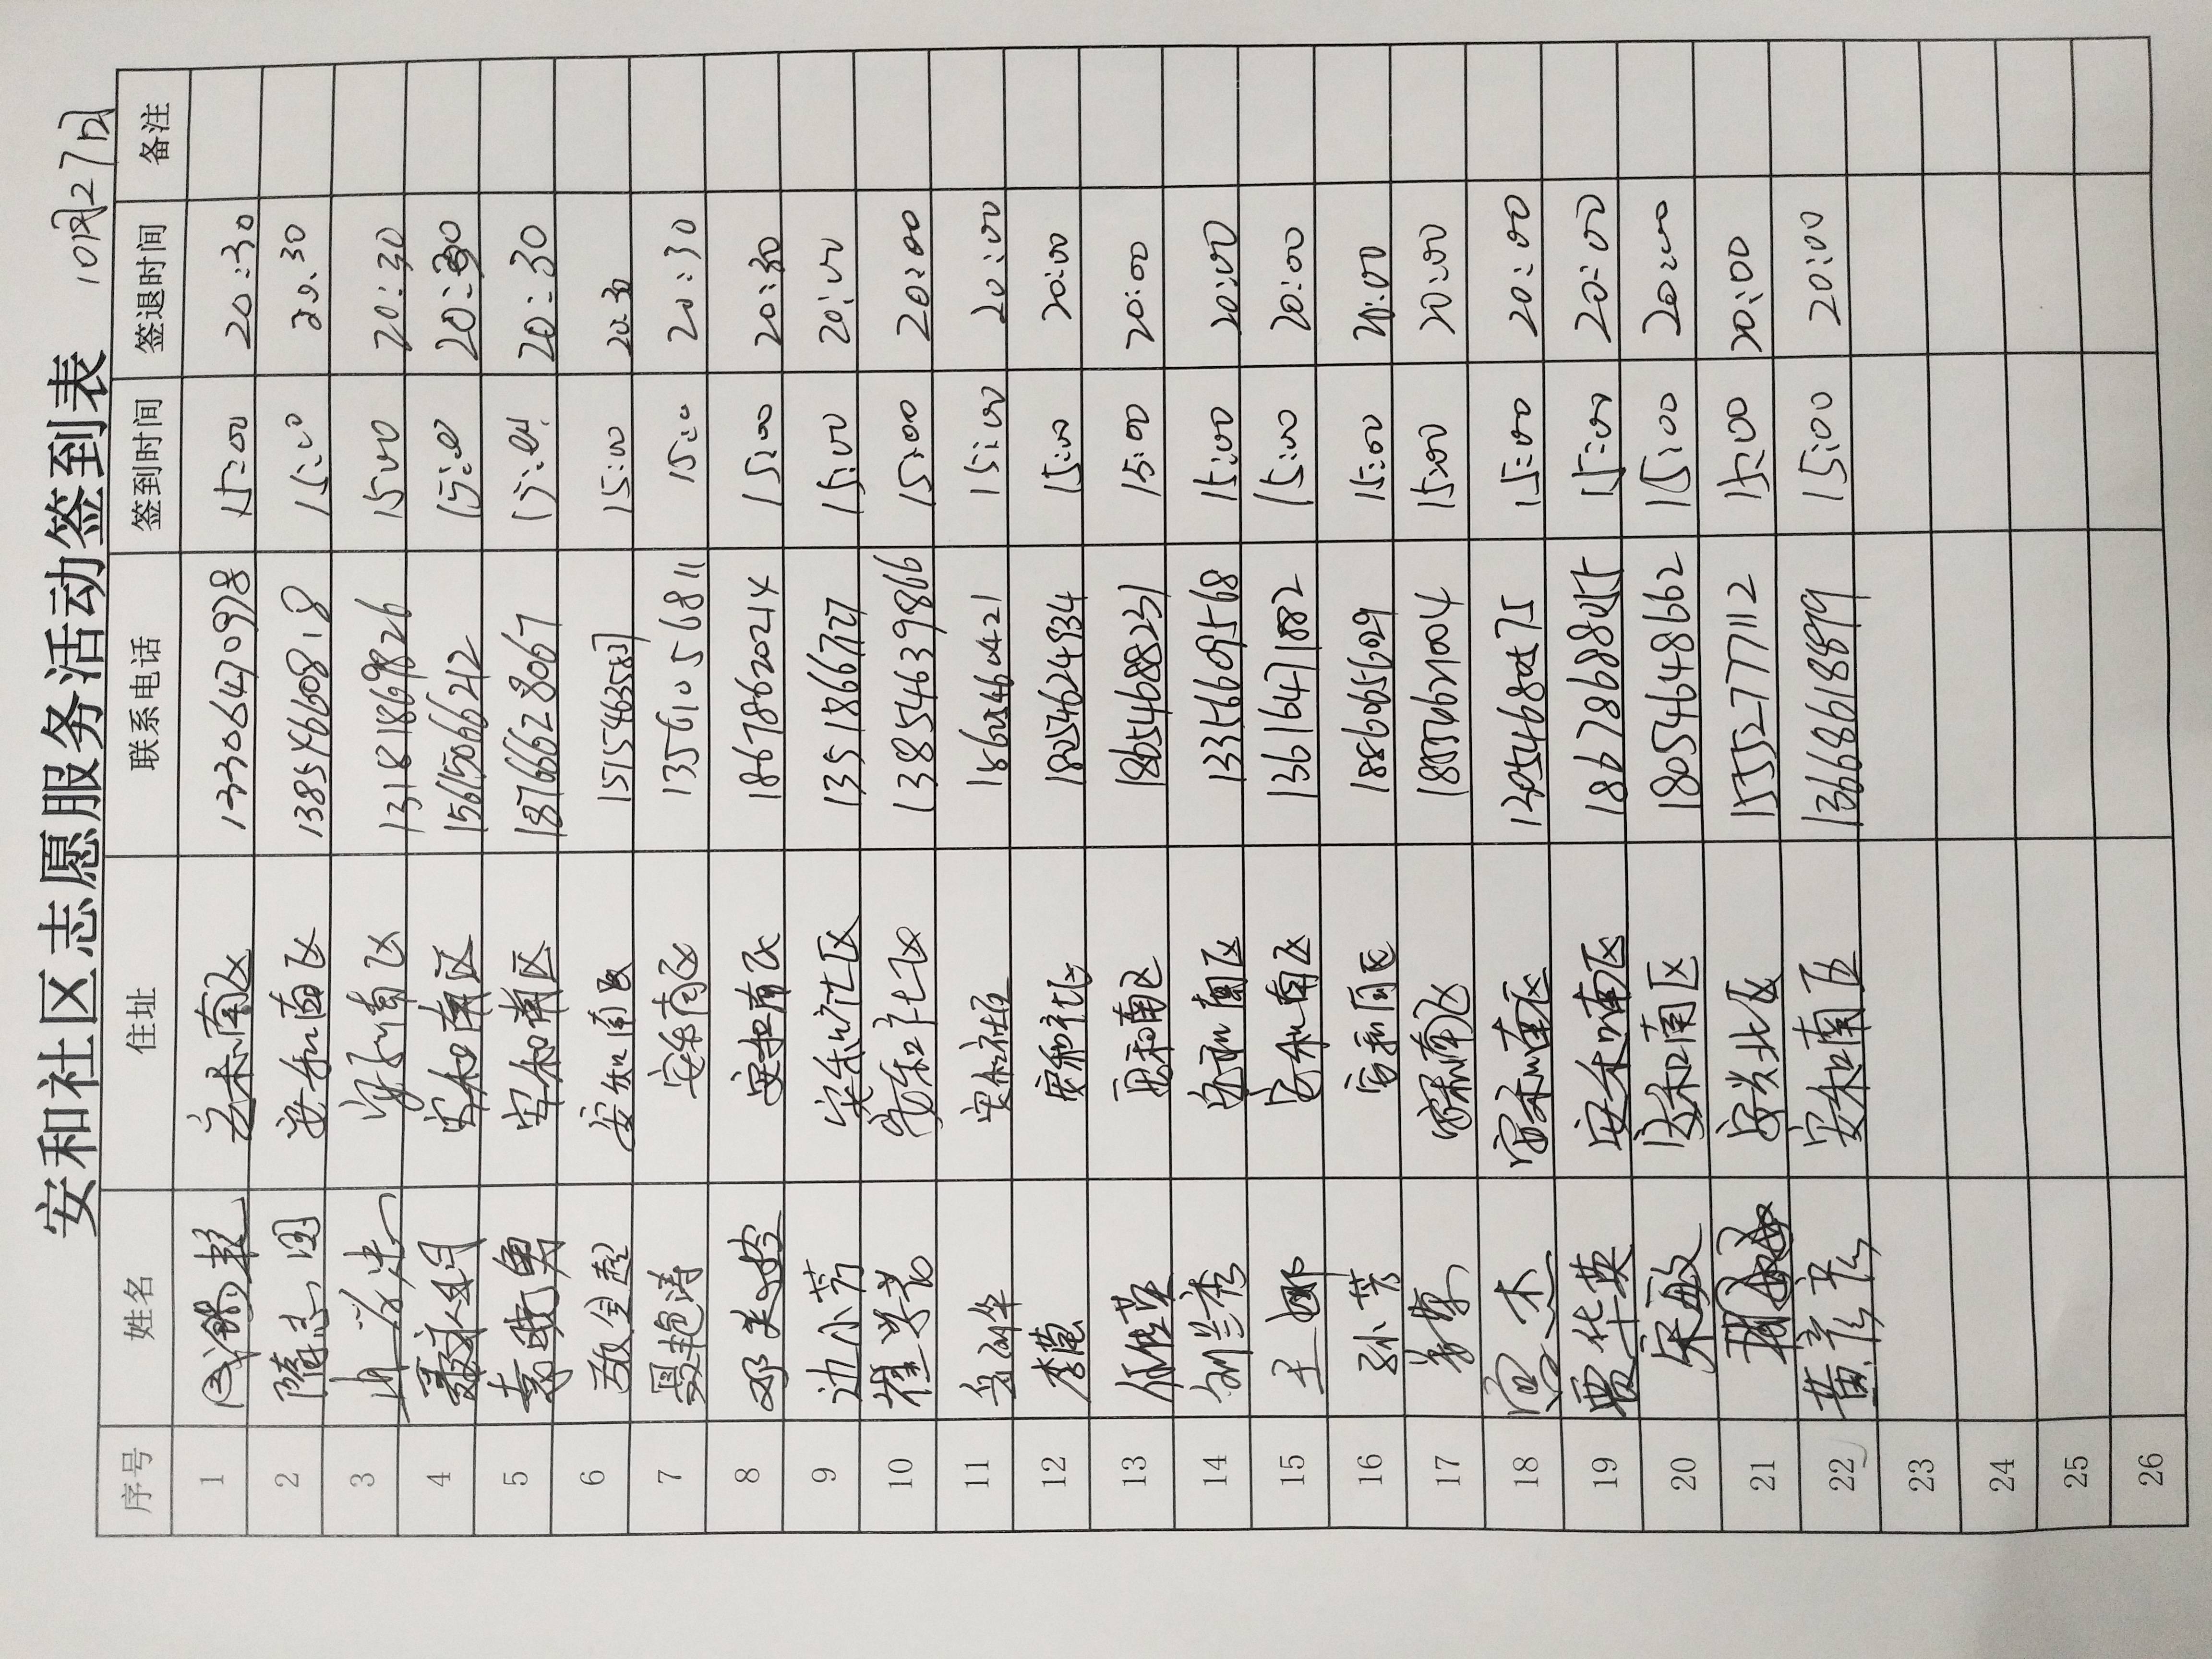 安和社区志愿服务活动签到表 10月27日
序号 姓名 住址 联系电话 签到时间 签退时间 备注
1 安和南区 13306470978 15:00 20:30
2 隋志国 安和南区 13854660818 15:00 20.30
3 安和南区 13181869826 15:00 20:30
4 安和南区 15615066212 15:00 20:30
5 袁敬勇 安和南区 18766628067 15:00 20:30
6 敌金超 安和南区 15:00 20.30
7 晏艳涛 安和南区 13561056811 15:00 20:30
8 邓美玲 安和南区 18678620214 15:00 20:30
9 边小芳 安乐社区 13518667127 15:00 20:00
10 崔学芳 安和社区 13854639866 15:00 20:00
11 安和社区 18605460421 15:00 20:00
12 李莹 安和社区 18254624934 15:00 20:00
13 安和南区 18654688231 15:00 20:00
14 刘兰秀 安和南区 13356609568 15:00 20:00
15 王娜 安和南区 13616471882 15:00 20:00
16 孙芳 安和南区 18860656029 15:00 20:00
17 安和南区 18554621004 15:00 20:00
18 安和南区 15:00 20:00
19 贾华英 安和南区 18678688455 15:00 20:00
20 宋敏 安和南区 18054648662 15:00 20:00
21 安兴北区 15527777112 15:00 20:00
22 黄彦彦 安和南区 13668618899 15:00 20:00
23
24
25
26